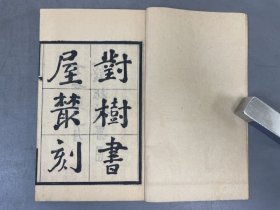 對樹書
屋叢刻